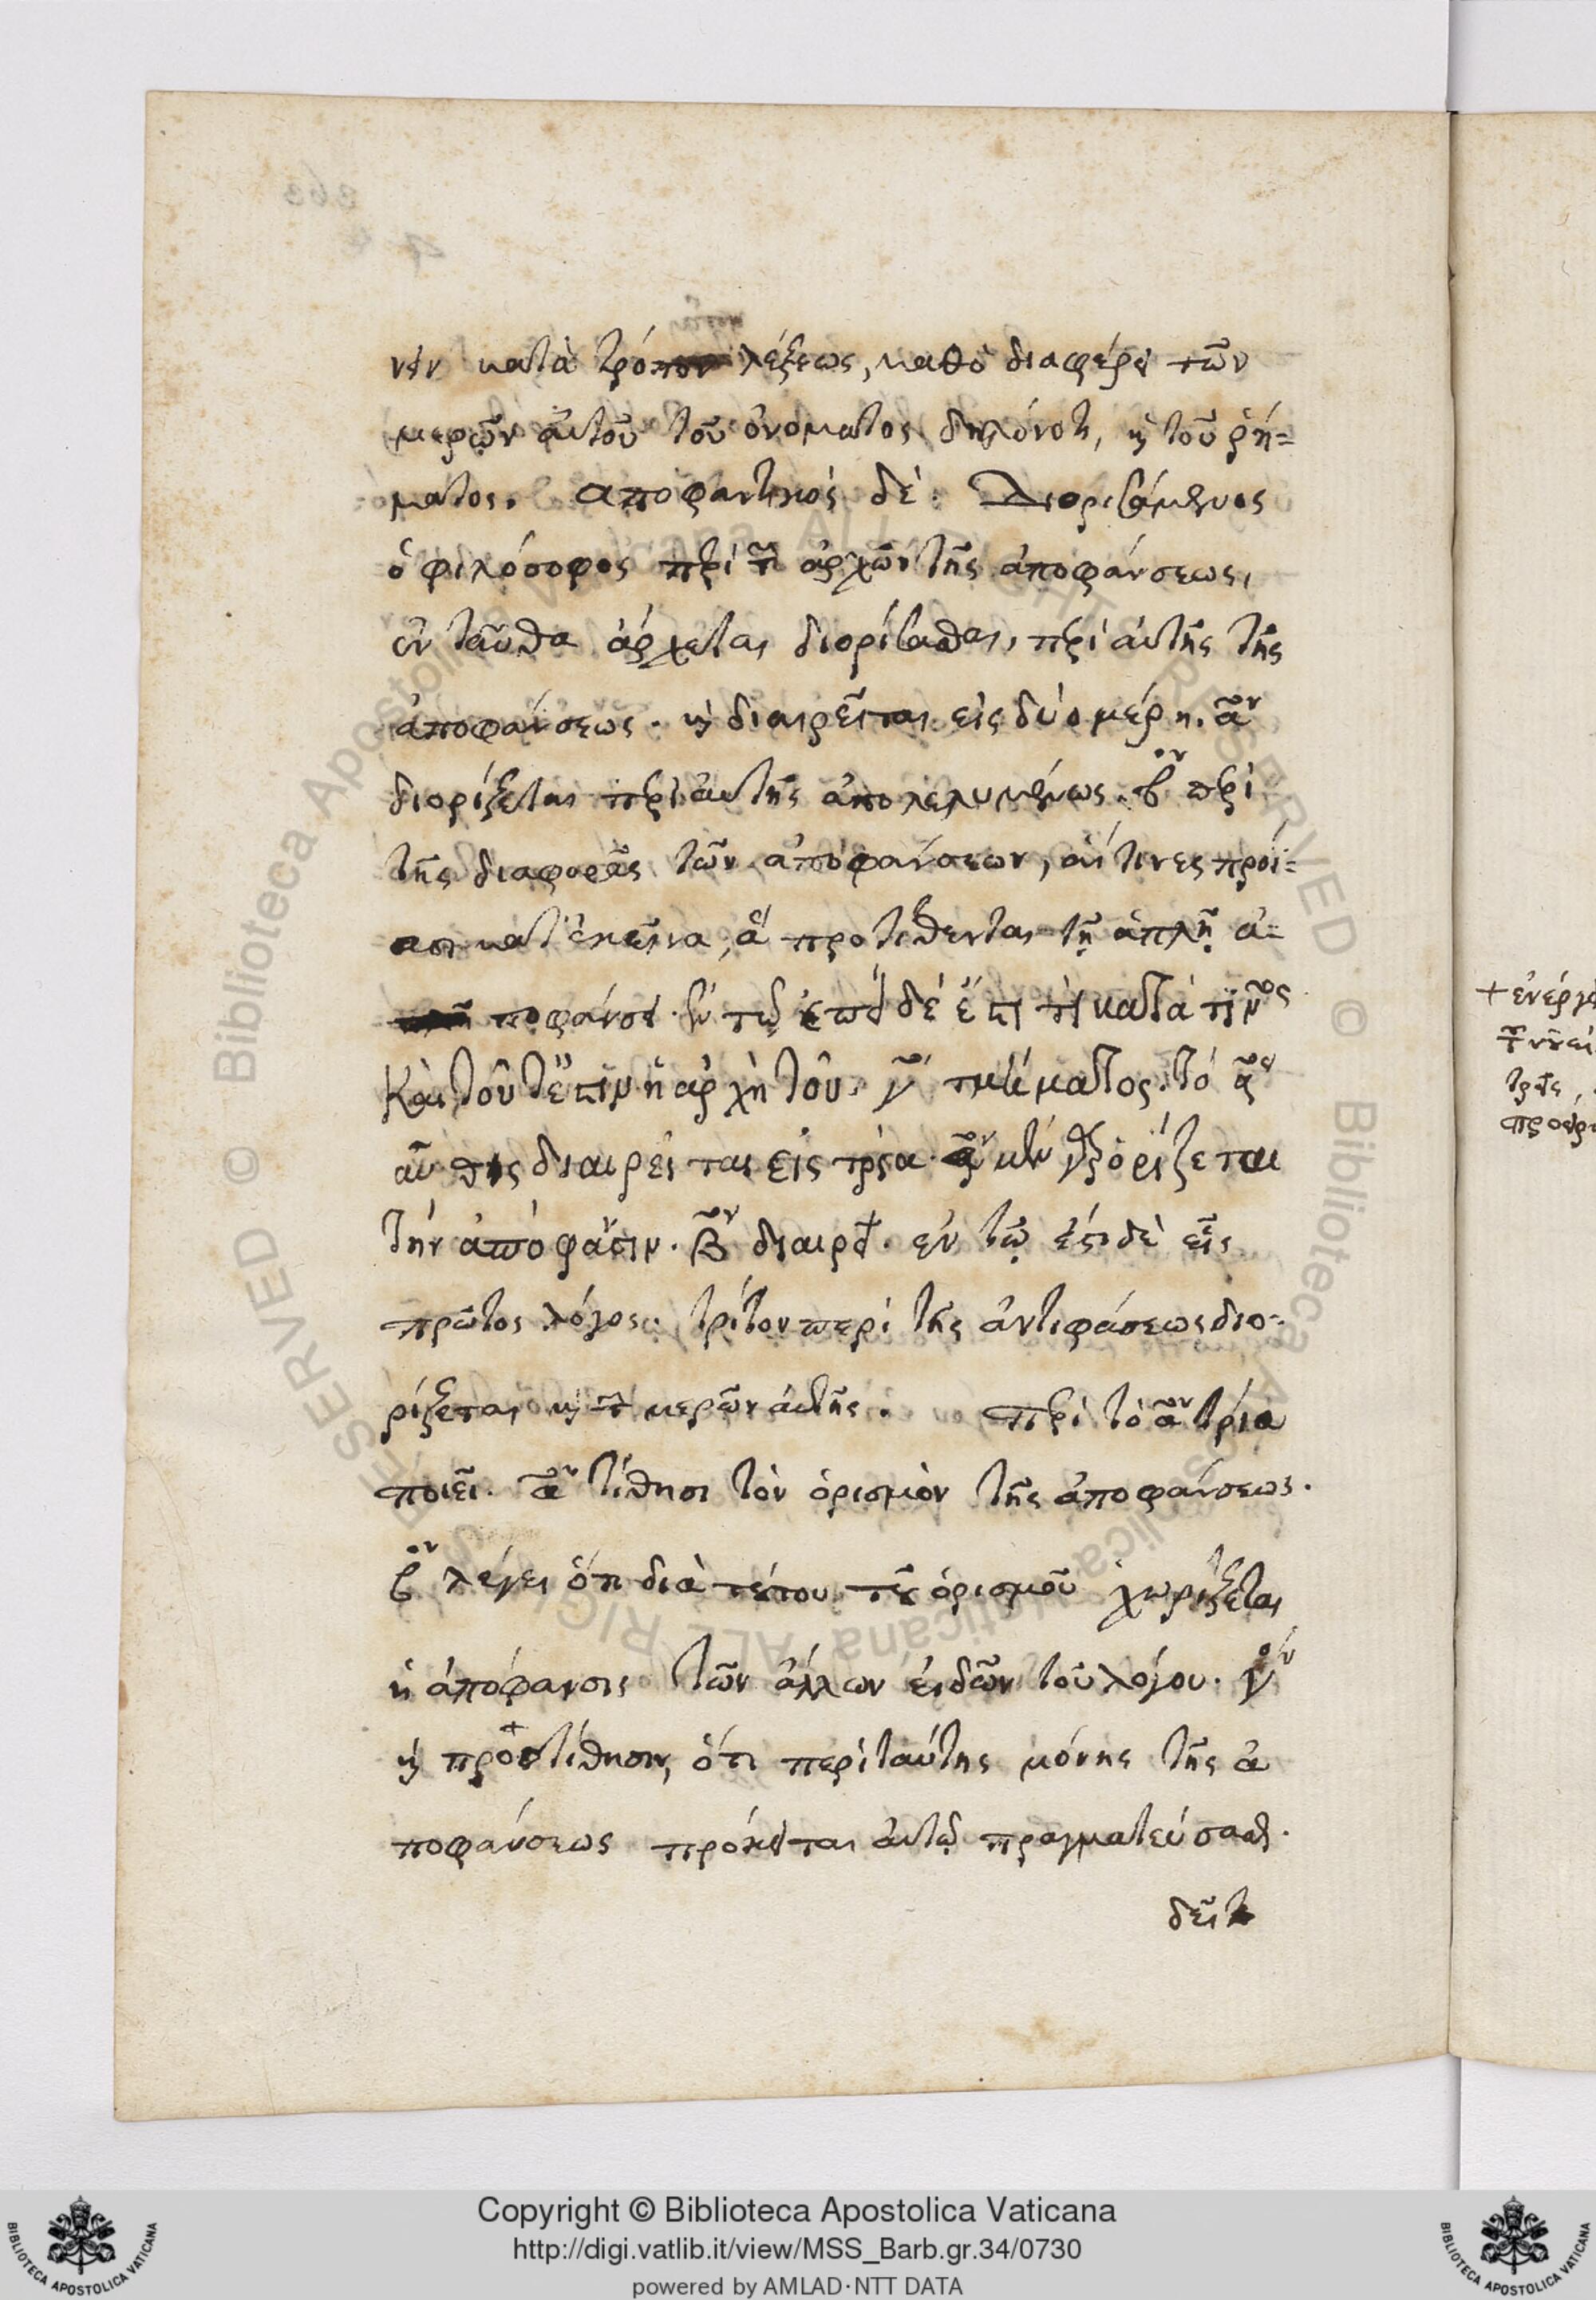 νέν κατὰ τρόπον λέξεως, καθὸ διαφέρει τῶν
μερῶν αὐτοῦ τοῦ ὀνόματος δηλόνοτι, καὶ τοῦ ῥή-
ματος. ἀποφαντικὸς δὲ. Διορισάμενος
ὁ φιλόσοφος περὶ τῶν ἀρχῶν τῆς ἀποφάνσεως,
ἐν ταῦθα ἄρχεται διορίσασθαι, περὶ αὐτῆς τῆς
ἀποφάνσεως. καὶ διαιρεῖται εἰς δύο μέρη. αον
διορίζεται περὶ αὐτῆς ἀπολελυμένως. βον περὶ
τῆς διαφορᾶς τῶν ἀποφάνσεων, αἵτινες προΐ-
ασι κατ' ἐκεῖνα, ἃ προτίθενται τῇ ἁπλῇ ἀ-
ποφάνσει. ἐν τῷ ἐπεὶ δὲ ἔστι τὶ κατὰ τινὸς
Καὶ τοῦτ' ἔστιν ἡ ἀρχὴ τοῦ γου τμήματος. τὸ αον
αὖθις διαιρεῖται εἰς τρία. αον μὲν ἐξορίζεται
τὴν ἀπόφανσιν. βον διαιρεῖ. ἐν τῷ ἔστι δὲ εἷς
πρῶτος λόγος. τρίτον περὶ τῆς ἀντιφάσεως διο-
ρίζεται καὶ τῶν μερῶν αὐτῆς. περὶ τὸ αον τρία
ποιεῖ. αον τίθησι τὸν ὁρισμὸν τῆς ἀποφάνσεως.
βον λέγει ὅτι διὰ τούτου τοῦ ὁρισμοῦ χωρίζεται
ἡ ἀπόφανσις τῶν ἄλλων εἰδῶν τοῦ λόγου. γον
καὶ προστίθησιν, ὅτι περὶ ταύτης μόνης τῆς ἀ
ποφάνσεως πρόκειται αὐτῷ πραγματεύσασθαι.
δεῖ
+ ἐνέργ
Copyright © Biblioteca Apostolica Vaticana
http://digi.vatlib.it/view/MSS_Barb.gr.34/0730
powered by AMLAD·NTT DATA
BIBLIOTECA APOSTOLICA VATICANA
BIBLIOTECA APOSTOLICA VATICANA